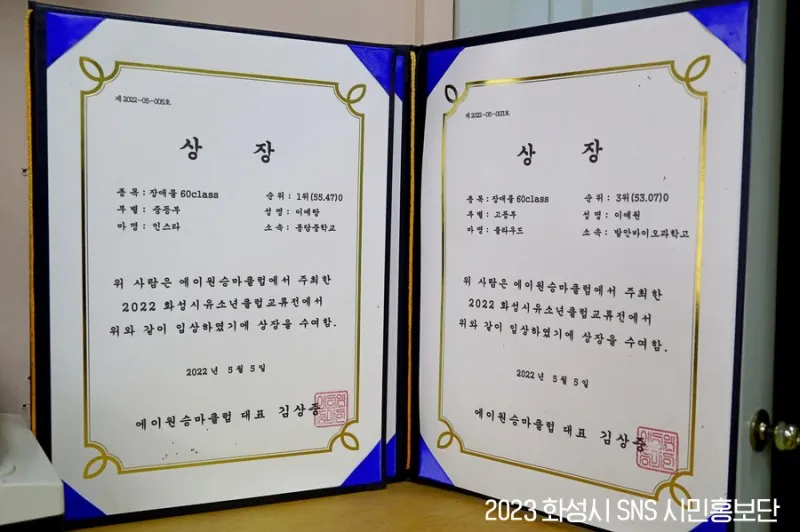 제 2022-05-005호
상 장
종 목 : 장애물 60class 순 위 : 1위(55.47)0
부 별 : 중등부 성 명 : 이예랑
마 명 : 인스타 소 속 : 봉담중학교
위 사람은 에이원승마클럽에서 주최한
2022 화성시유소년클럽교류전에서
위와 같이 입상하였기에 상장을 수여함.
2022 년 5 월 5 일
에이원승마클럽 대표 김상중
제 2022-05-003호
상 장
종 목 : 장애물 60class 순 위 : 3위(53.07)0
부 별 : 고등부 성 명 : 이예원
마 명 : 클라우드 소 속 : 발안바이오과학고
위 사람은 에이원승마클럽에서 주최한
2022 화성시유소년클럽교류전에서
위와 같이 입상하였기에 상장을 수여함.
2022 년 5 월 5 일
에이원승마클럽 대표 김상중
2023 화성시 SNS 시민홍보단